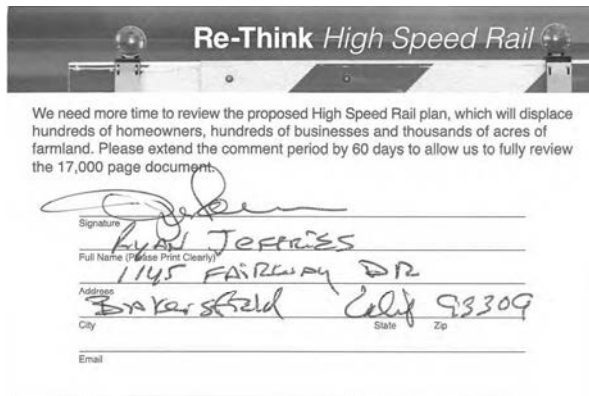 Re-Think High Speed Rail
We need more time to review the proposed High Speed Rail plan, which will displace
hundreds of homeowners, hundreds of businesses and thousands of acres of
farmland. Please extend the comment period by 60 days to allow us to fully review
the 17,000 page document.
Signature
RYAN JEFFRIES
Full Name (Please Print Clearly)
1145 FAIRWAY DR
Address
Bakersfield Calif 93309
City State Zip
Email